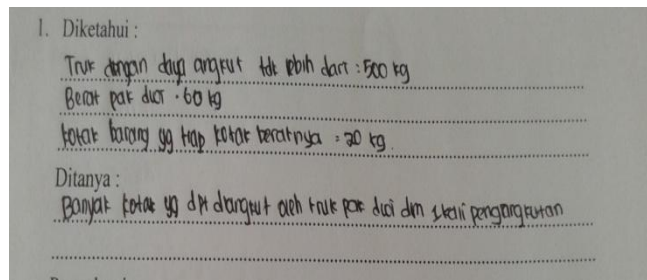 1. Diketahui :
Truk dengan daya angkut tdk lebih dari : 500 kg
Berat pak dwi : 60 kg
kotak barang yg tiap kotak beratnya = 20 kg.
Ditanya :
Banyak kotak yg dpt diangkut oleh truk pak dwi dlm 1 kali pengangkutan